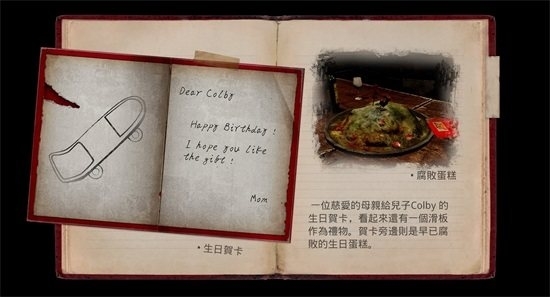 Dear Colby
Happy Birthday !
I hope you like
the gift !
Mom
• 生日賀卡
• 腐敗蛋糕
一位慈愛的母親給兒子Colby 的
生日賀卡，看起來還有一個滑板
作為禮物。賀卡旁邊則是早已腐
敗的生日蛋糕。